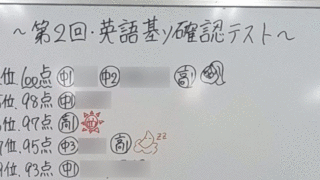 ～第2回・英語基ソ確認テスト～
位 100点 中1 中2 高1
位. 98点 中1
位. 97点 高1
位. 95点 中3 高1 zz
位. 93点 中1